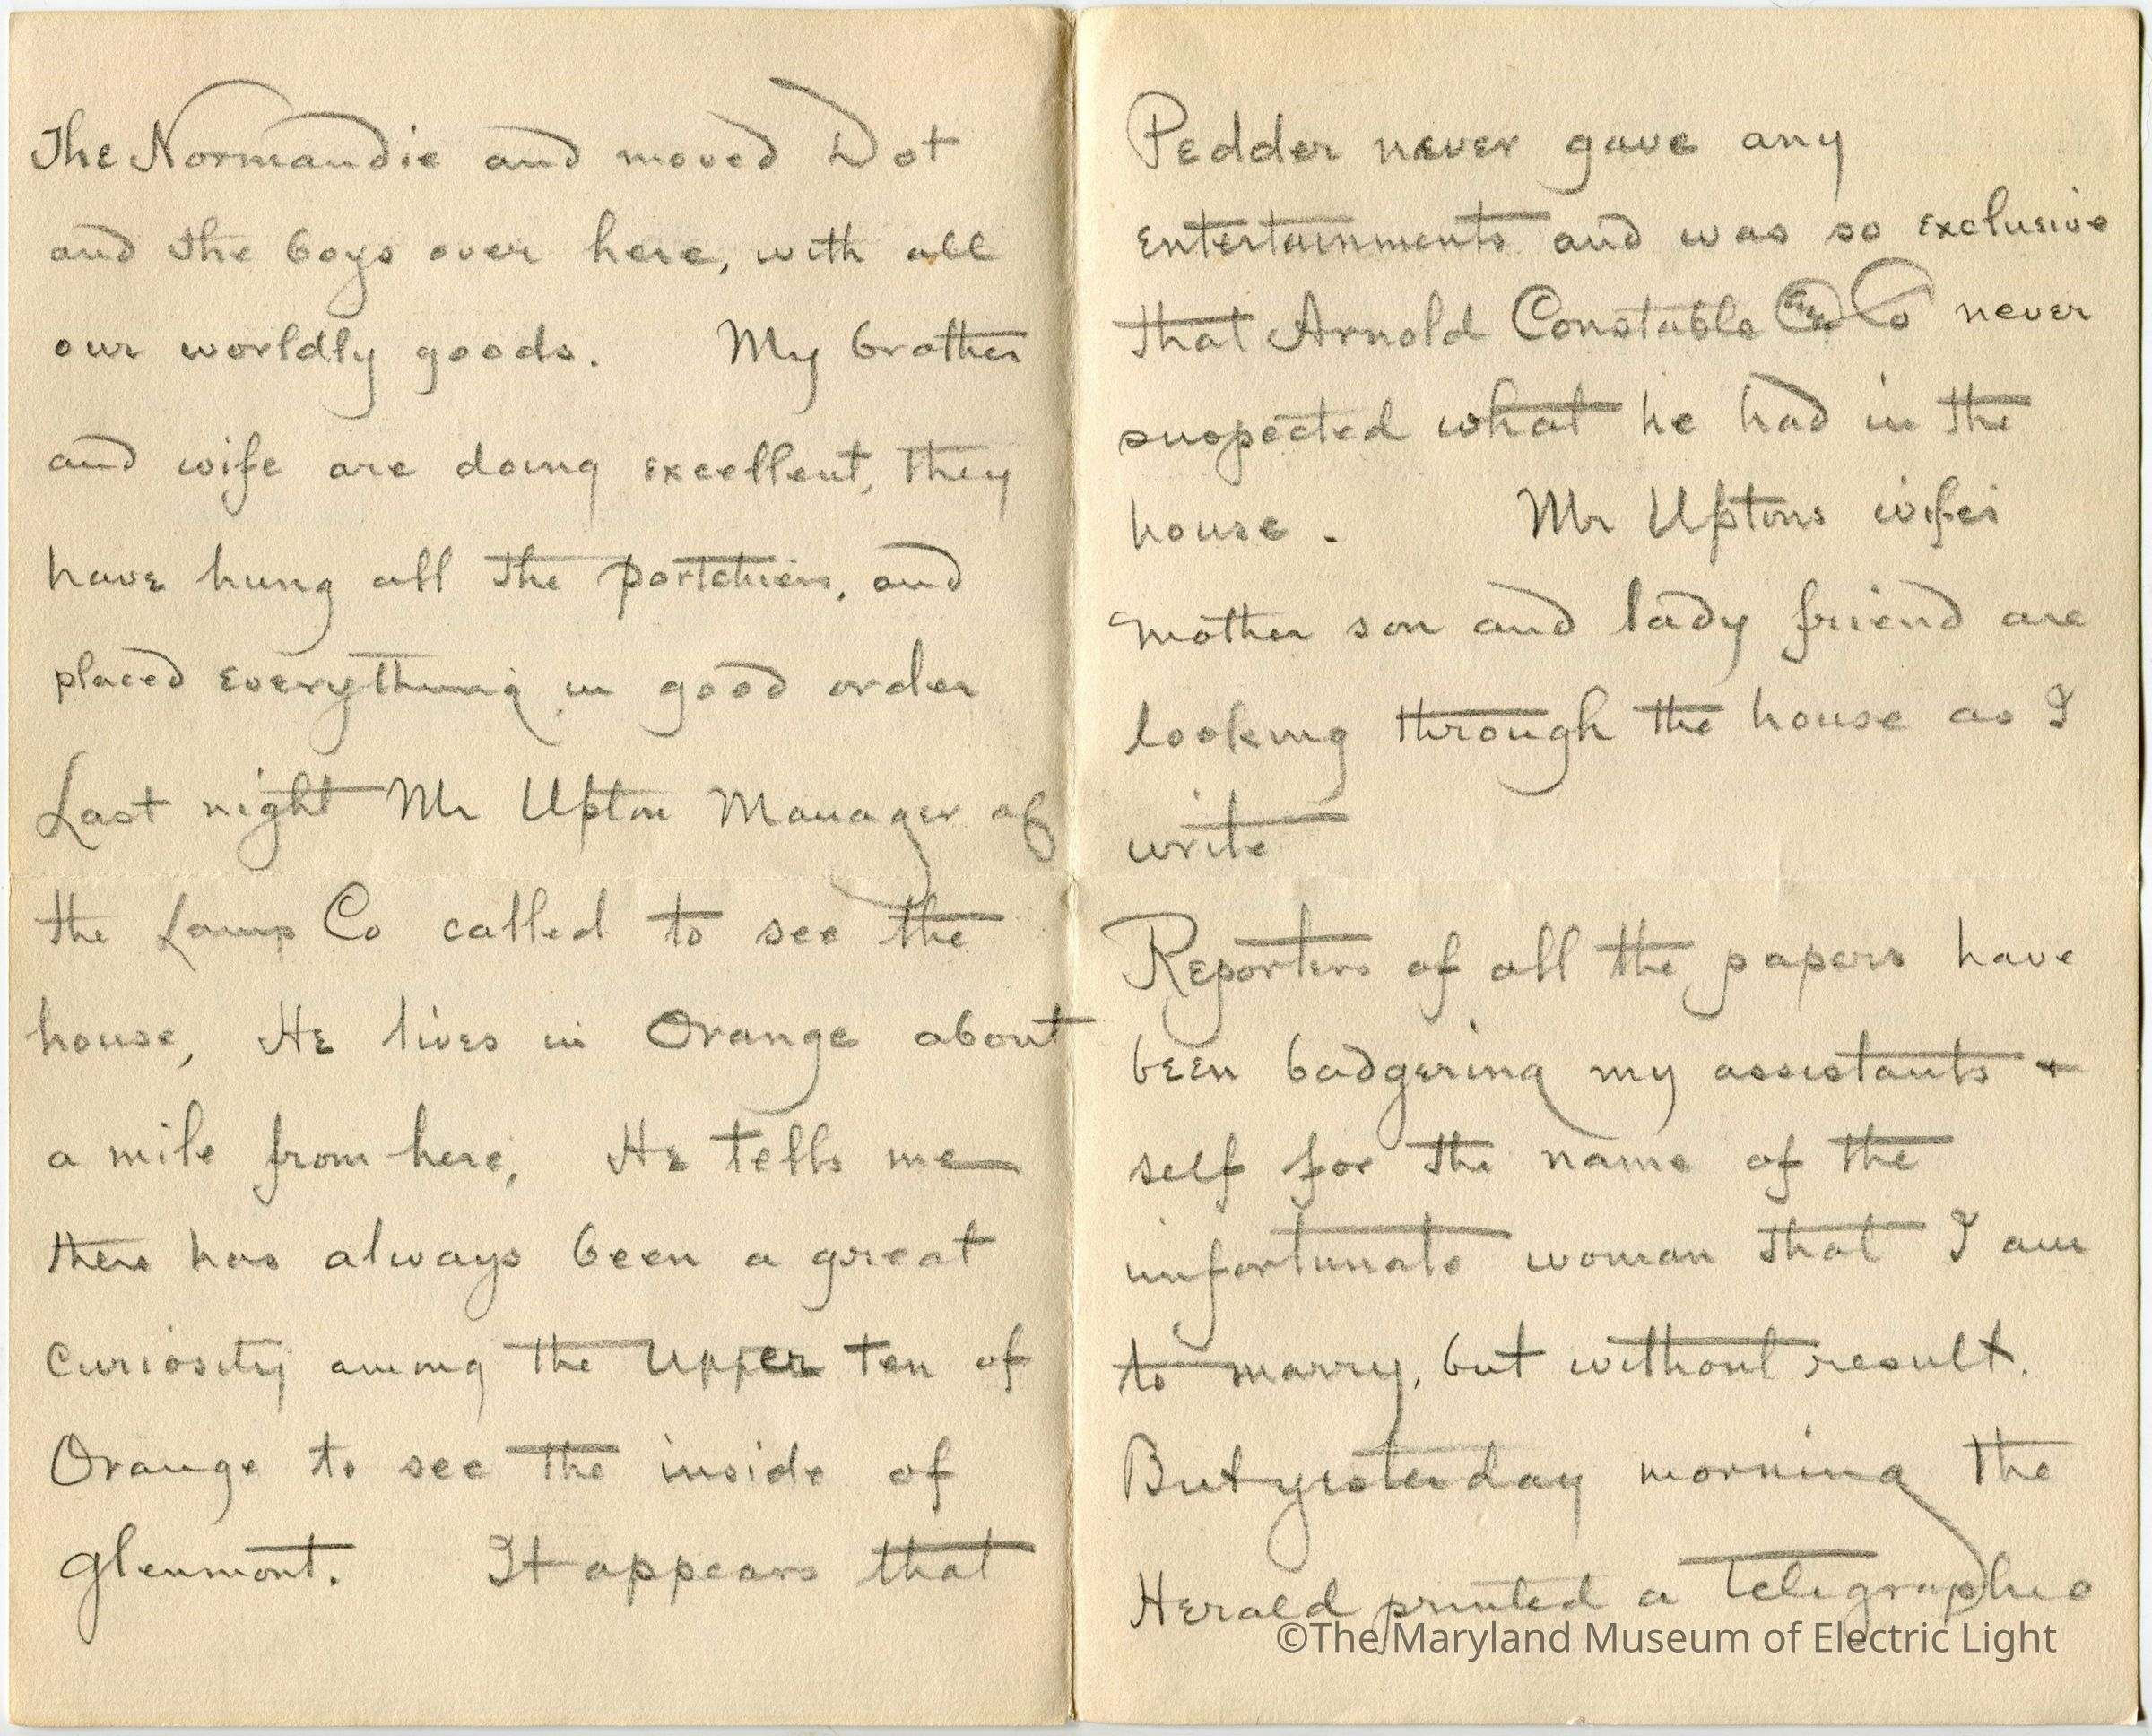 The Normandie and moved Dot
and the boys over here, with all
our worldly goods. My brother
and wife are doing excellent, they
have hung all the portchiers, and
placed everything in good order
Last night Mr Upton Manager of
the Lamp Co called to see the
house, He lives in Orange about
a mile from here, He tells me
there has always been a great
curiosity among the Upper ten of
Orange to see the inside of
Glenmont. It appears that
Pedder never gave any
entertainments and was so exclusive
that Arnold Constable Co never
suspected what he had in the
house. Mr Uptons wifes
mother son and lady friend are
looking through the house as I
write
Reporters of all the papers have
been badgering my assistants +
self for the name of the
unfortunate woman that I am
to marry, but without result.
But yesterday morning the
Herald printed a telegraphic
©The Maryland Museum of Electric Light